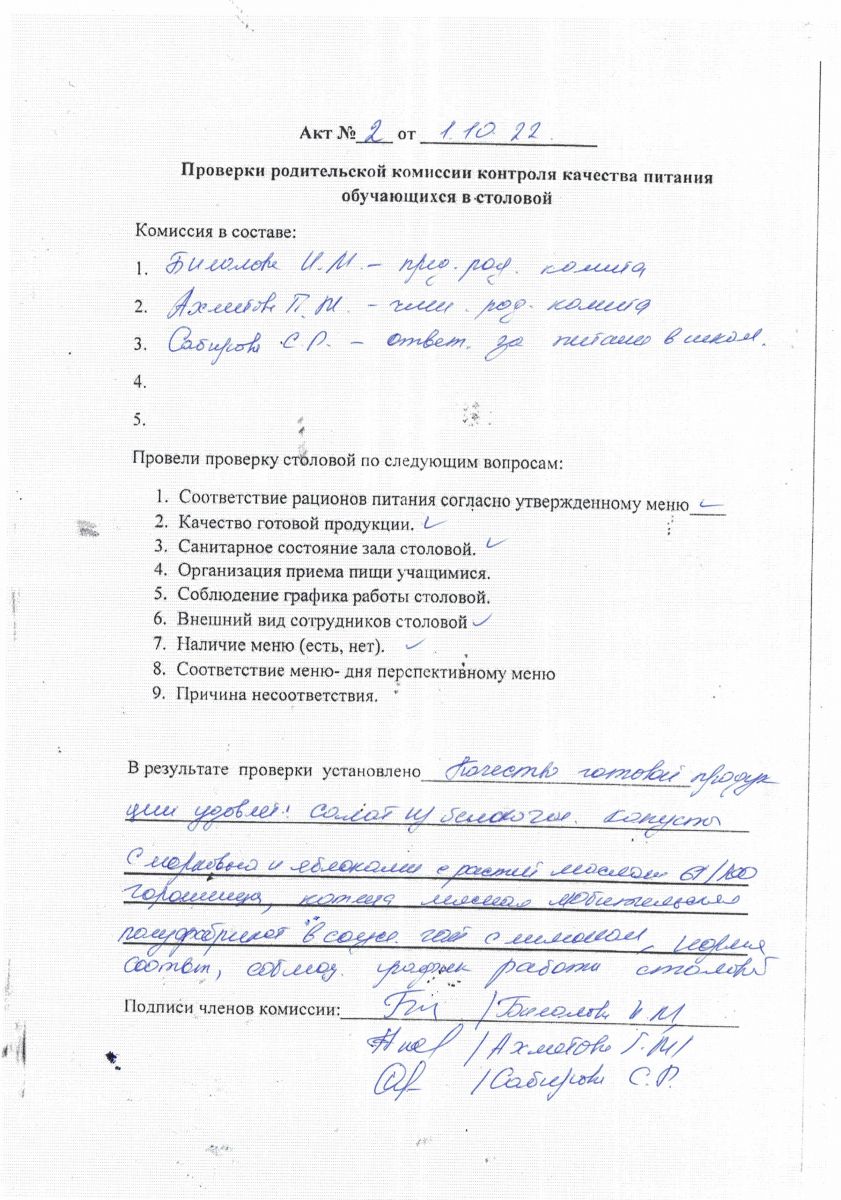 Акт № 2 от 1.10.22.
Проверки родительской комиссии контроля качества питания
обучающихся в столовой
Комиссия в составе:
1. Билалова И.М. – пред. род. комита
2. Ахметова Г.Ж. – член. род. комита
3. Сабирова С.Р. – ответ. за питание в школ.
4.
5.
Провели проверку столовой по следующим вопросам:
1. Соответствие рационов питания согласно утвержденному меню ✓
2. Качество готовой продукции. ✓
3. Санитарное состояние зала столовой. ✓
4. Организация приема пищи учащимися.
5. Соблюдение графика работы столовой.
6. Внешний вид сотрудников столовой ✓
7. Наличие меню (есть, нет). ✓
8. Соответствие меню- дня перспективному меню
9. Причина несоответствия.
В результате проверки установлено Качество готовой продук
ции удовлет: салат из белокоч. капусты
с морковью и яблоками с растит маслом /100
горошница, котлета мясная любительская
полуфабрикат в соусе. чай с лимоном, норма
соответ, соблюд. график работы столовой
Подписи членов комиссии: /Билалова И.М/
/Ахметова Г.Ж/
/Сабирова С.Р.